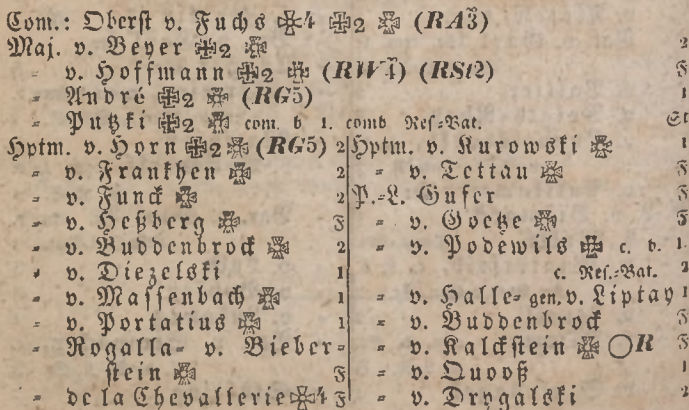 Com.: Oberst v. Fuchs ✠4 ✠2 ✠ (RA3)
Maj. v. Beyer ✠2 ✠ 2
- v. Hoffmann ✠2 ✠ (RW4) (RSt2) F
- André ✠2 ✠ (RG5) 1
- Putzki ✠2 ✠ com. b 1. comb Res.-Bat. St
Hptm. v. Horn ✠2 ✠ (RG5) 2
- v. Frankhen ✠ 2
- v. Funck ✠ 2
- v. Heßberg ✠ F
- v. Buddenbrock ✠ 2
- v. Diezelski 1
- v. Massenbach ✠ 1
- v. Portatius ✠ 1
- Rogalla- v. Bieber-
stein ✠ F
- de la Chevallerie ✠4 F
Hptm. v. Kurowski ✠ 1
- v. Tettau ✠ F
P.-L. Gufer F
- v. Goetze ✠ F
- v. Podewils ✠ c. b. 1.
c. Res.-Bat. 2
- v. Halle- gen. v. Liptay 1
- v. Buddenbrock F
- v. Kalckstein ✠ ○R F
- v. Quooß 1
- v. Drygalski 2